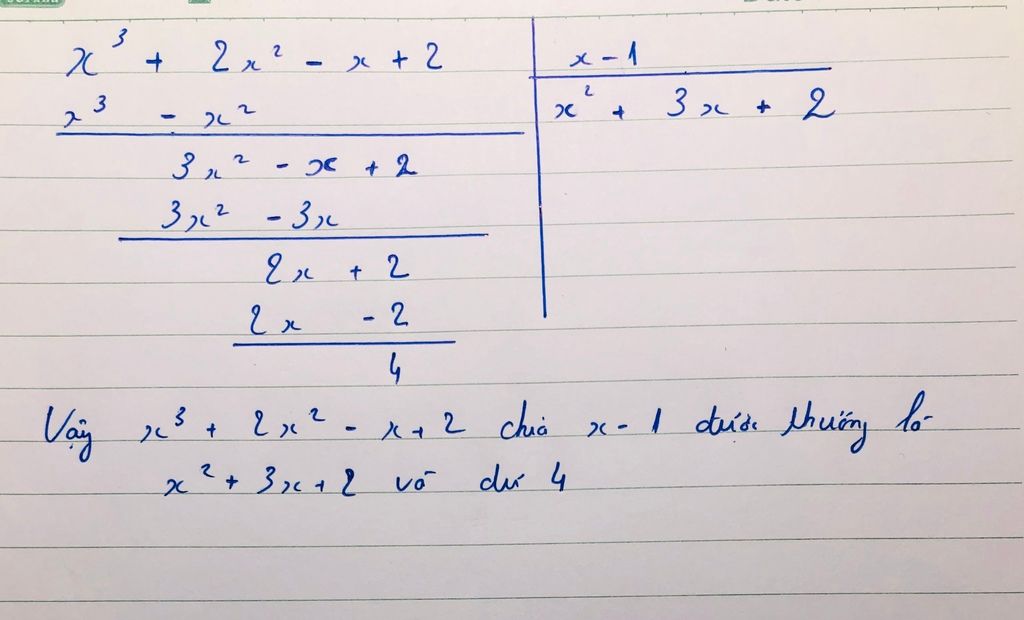 x³ + 2x² - x + 2 | x - 1
x³ - x² | x² + 3x + 2
3x² - x + 2
3x² - 3x
2x + 2
2x - 2
4
Vậy x³ + 2x² - x + 2 chia x - 1 được thương là
x² + 3x + 2 và dư 4